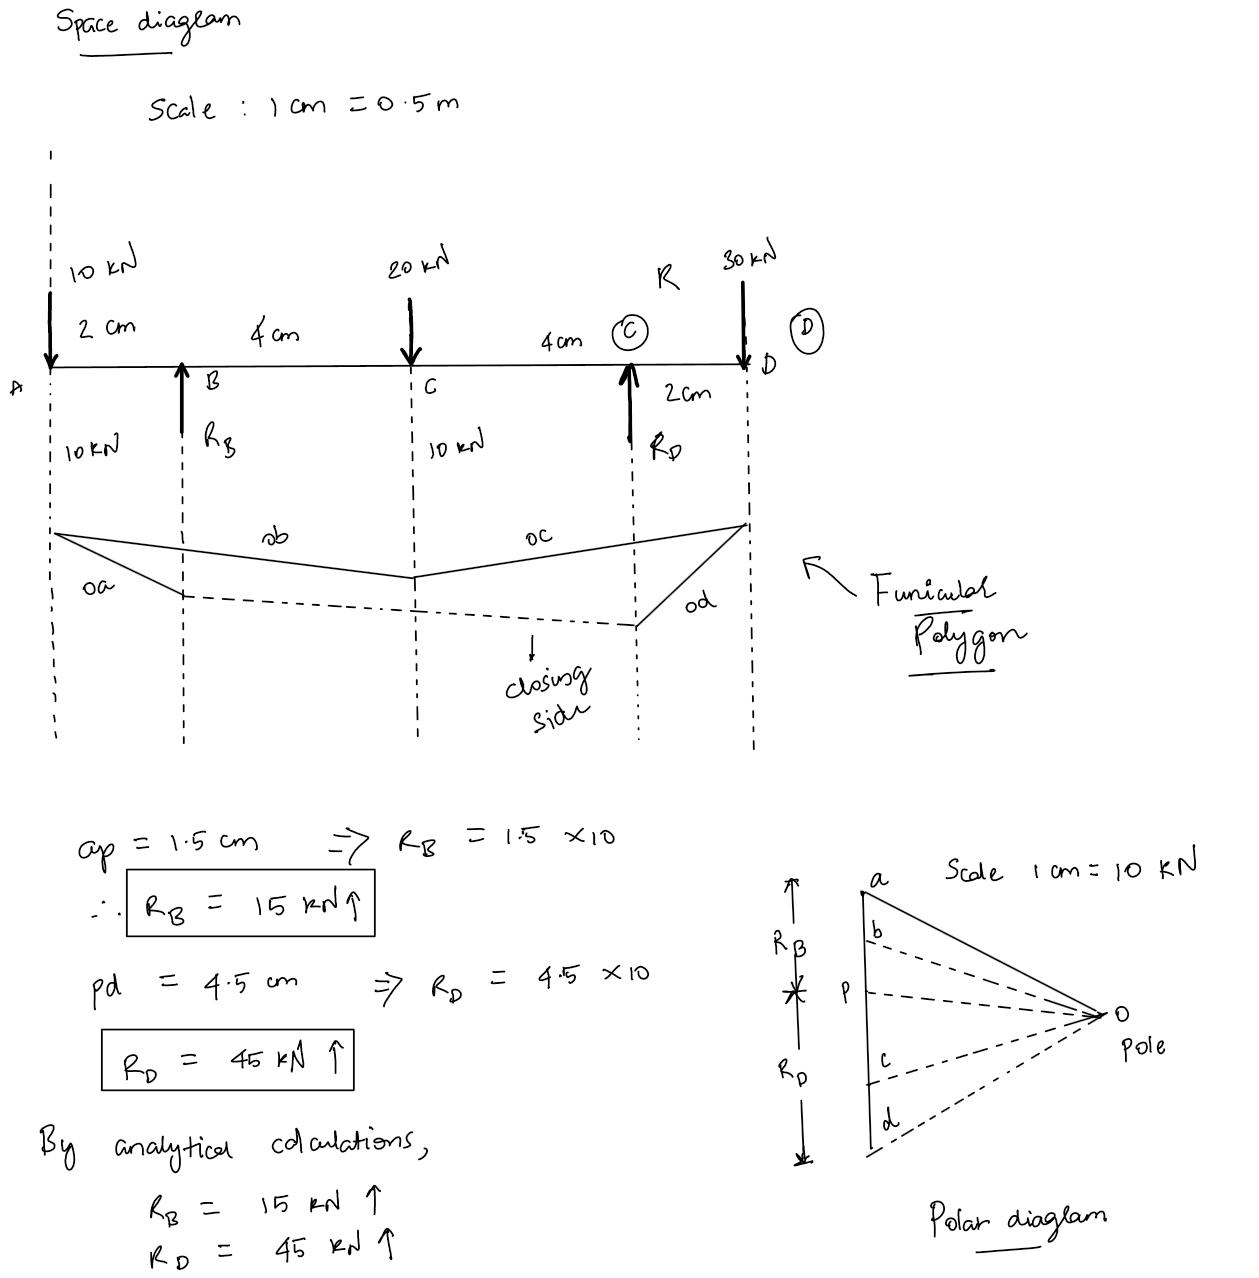 Space diagram
Scale : 1 cm = 0.5 m
10 kN
20 kN
R
30 kN
2 cm
4 cm
4 cm
C
D
A
B
C
2 cm
D
10 kN
R_B
10 kN
R_D
ob
oc
oa
od
Funicular
Polygon
closing
side
ap = 1.5 cm ⇒ R_B = 1.5 × 10
∴ R_B = 15 kN ↑
pd = 4.5 cm ⇒ R_D = 4.5 × 10
R_D = 45 kN ↑
By analytical calculations,
R_B = 15 kN ↑
R_D = 45 kN ↑
Scale 1 cm = 10 kN
a
R_B
b
P
O
Pole
R_D
c
d
Polar diagram